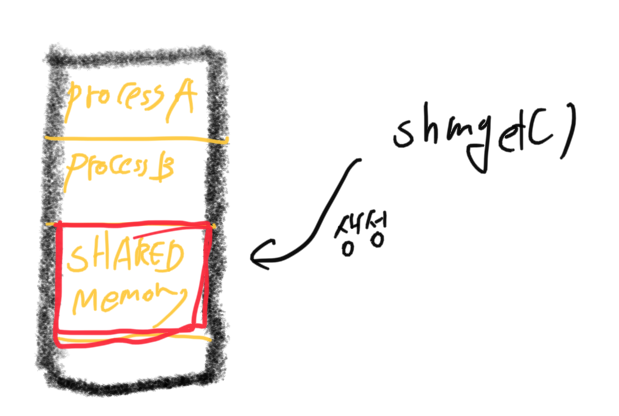 process A
process B
SHARED
memory
shmget()
생성